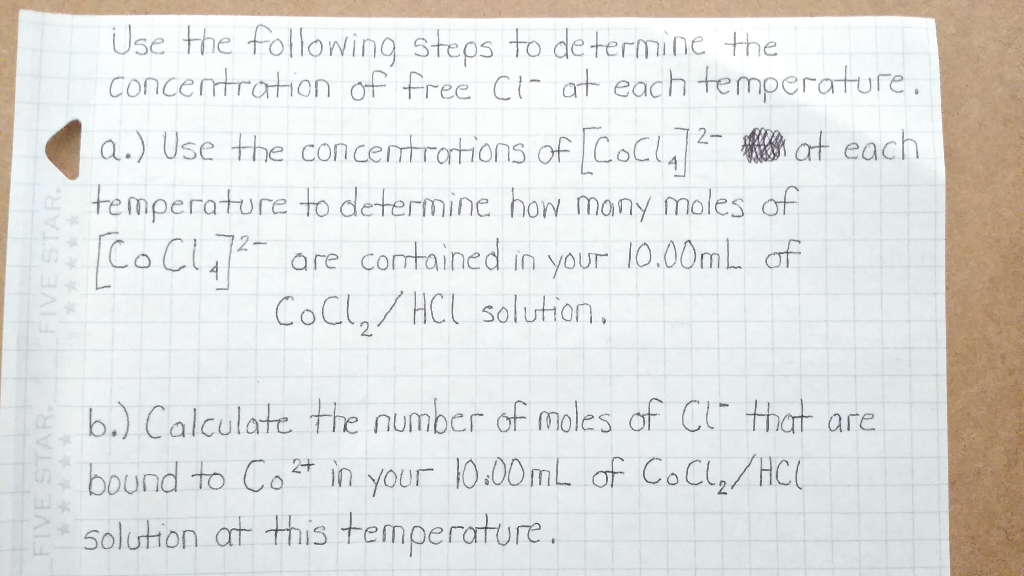 Use the following steps to determine the
concentration of free Cl⁻ at each temperature.
a.) Use the concentrations of [CoCl₄]²⁻ at each
temperature to determine how many moles of
[CoCl₄]²⁻ are contained in your 10.00mL of
CoCl₂/HCl solution.
b.) Calculate the number of moles of Cl⁻ that are
bound to Co²⁺ in your 10.00mL of CoCl₂/HCl
solution at this temperature.
FIVE STAR.
FIVE STAR.